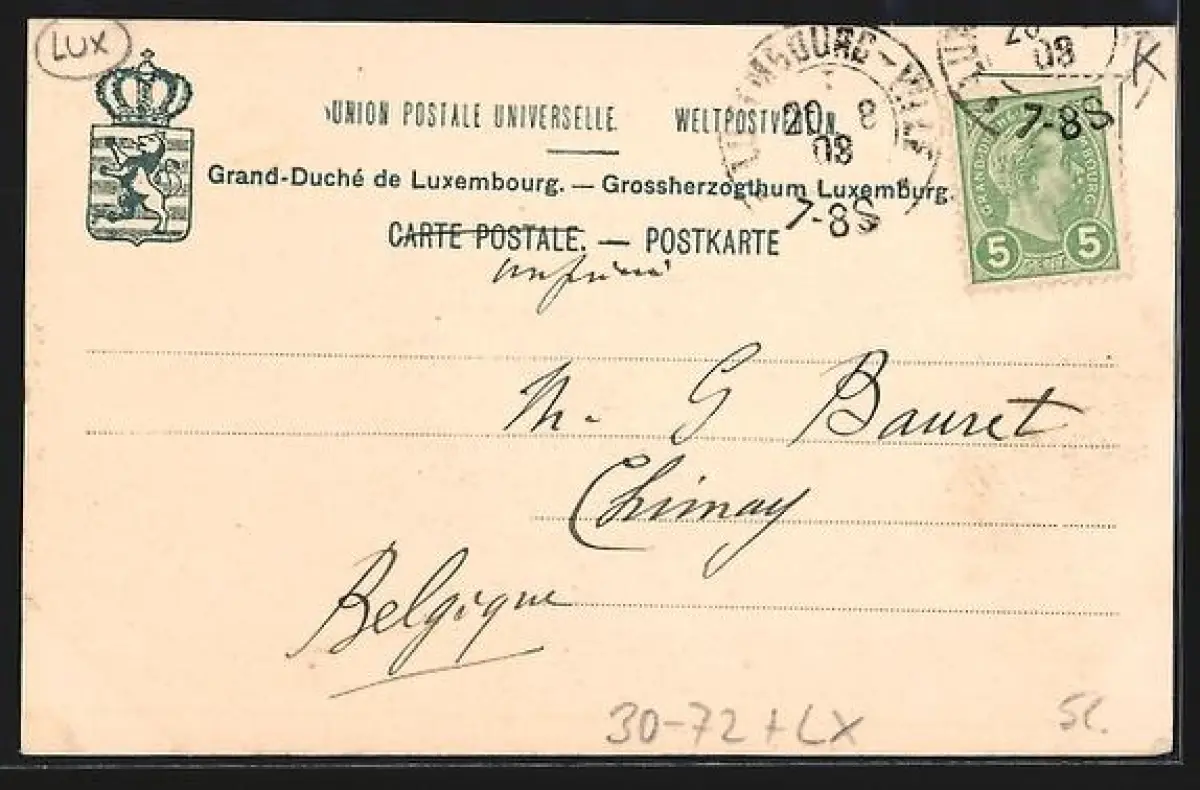 LUX
K
UNION POSTALE UNIVERSELLE. WELTPOSTVEREIN.
Grand-Duché de Luxembourg. — Grossherzogthum Luxemburg.
CARTE POSTALE. — POSTKARTE
imprimé
LUXEMBOURG-VILLE
20 8
03
7-8S
20
03
7-8S
GRAND DUCHÉ DE LUXEMBOURG
5 5
M. G Bauret
Chimay
Belgique
30-72 + LX